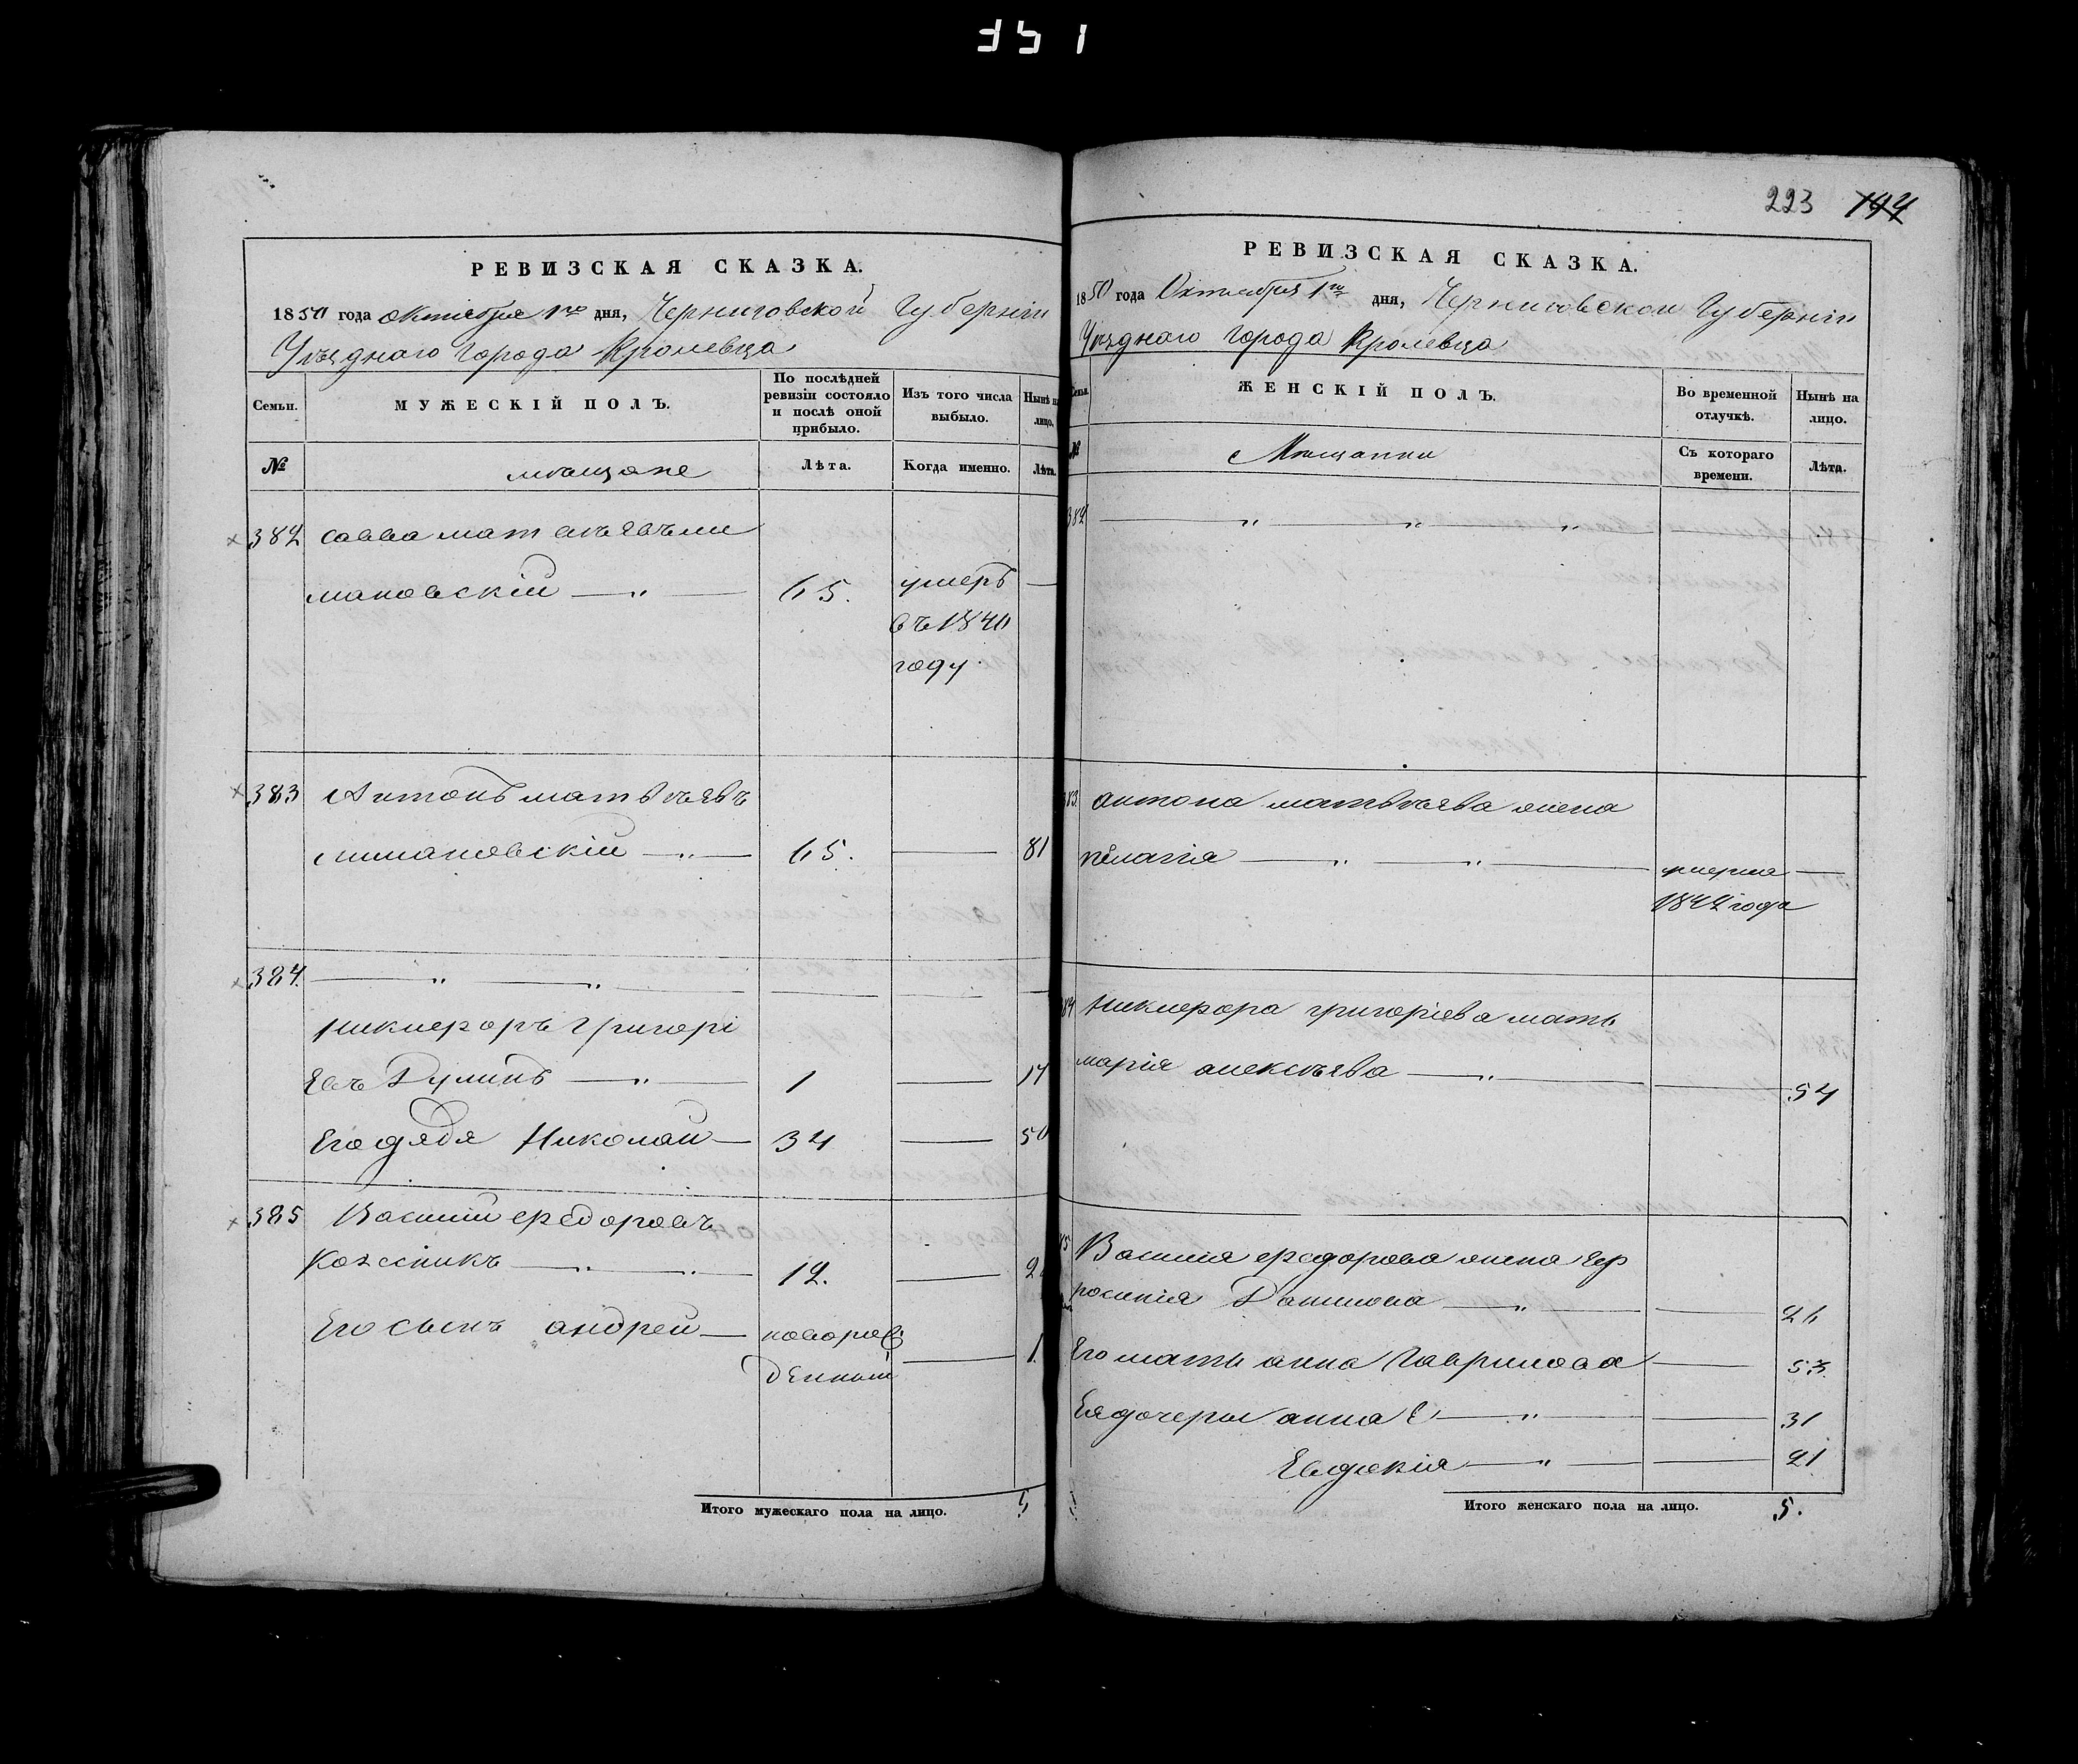 351
РЕВИЗСКАЯ СКАЗКА.
1850 года октября 1го дня, Черниговской Губерніи
Уѣзднаго города Кролевца
Семьи.
МУЖЕСКІЙ ПОЛЪ.
По послѣдней
ревизіи состояло
и послѣ оной
прибыло.
Изъ того числа
выбыло.
Нынѣ на
лицо.
№
мѣщане
Лѣта.
Когда именно.
Лѣта.
382 савва матвѣевъ ли
мановскій — „ — 65. умеръ —
въ 1840
году.
383 Антонъ матвѣевъ
лимановскій — „ — 65. — 81
384. — „ — „ —
никиѳоръ григорі
евъ — „ — 1 — 17
Его дядя Николай — 34 — 50
385 Василий ѳедоровъ
— „ — „ — 12. — 2
Его сынъ андрей — новорож
денный — 1.
Итого мужескаго пола на лицо. 5
223 194
РЕВИЗСКАЯ СКАЗКА.
1850 года Октября 1го дня, Черниговской Губерніи
Уѣзднаго города Кролевца
Семьи.
ЖЕНСКІЙ ПОЛЪ.
Во временной
отлучкѣ.
Нынѣ на
лицо.
№
Мѣщанки
Съ котораго
времени.
Лѣта.
382 — „ — „ — „ —
383. антона матвѣева жена
пелагія — „ — „ — умерла —
1842 года
384 никиѳора григоріева мать
марія алексѣева — „ — 54
385 Василия ѳедорова жена Еф
росинія Данилова — „ — 26
Его мать анна Гаврилова — 53.
Ея дочеры анна — „ — 31
Евдокія — „ — 21
Итого женскаго пола на лицо. 5.